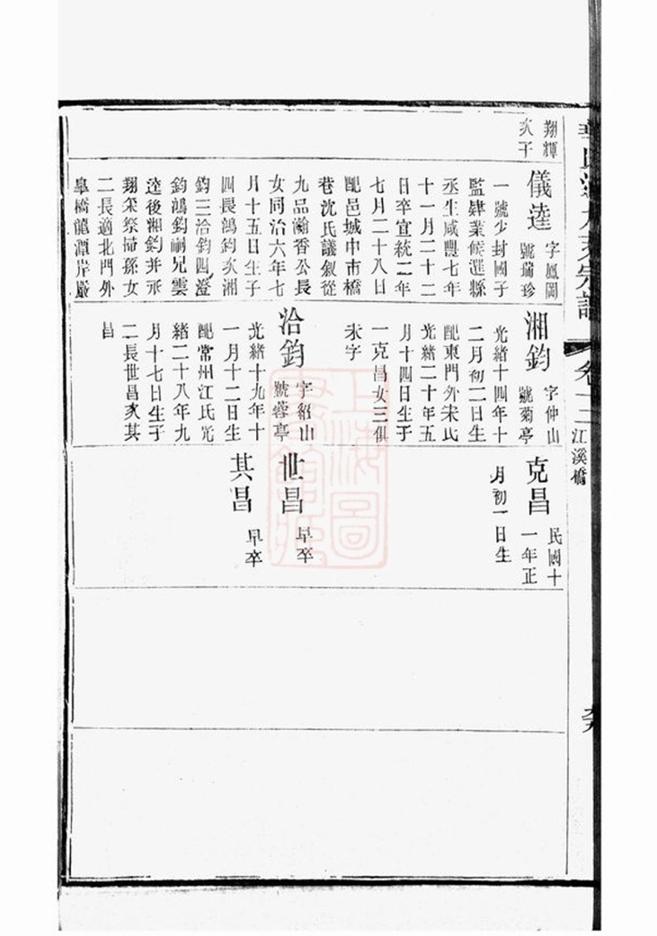 卷十三
江溪橋
翔輝
次子
儀逵
字鳳岡
號蒲珍
一號少封國子
監肄業候選縣
丞生咸豐七年
十一月二十二
日卒宣統二年
七月二十八日
配邑城中市橋
巷沈氏議叙從
九品瀚香公長
女同治六年七
月十五日生子
四長鴻鈞次湘
鈞三洽鈞四澄
鈞鴻鈞嗣兄雲
逵後湘鈞并承
翔衆祭掃孫女
二長適北門外
臯橋龍潭岸嚴
湘鈞
字仲山
號菊亭
光緒十四年十
二月初二日生
配東門外朱氏
光緒二十年五
月十四日生子
一克昌女三俱
未字
洽鈞
字紹山
號蓉亭
光緒十九年十
一月十二日生
配常州江氏光
緒二十八年九
月十七日生子
二長世昌次其
昌
克昌
民國十
一年正
月初一日生
世昌
早卒
其昌
早卒